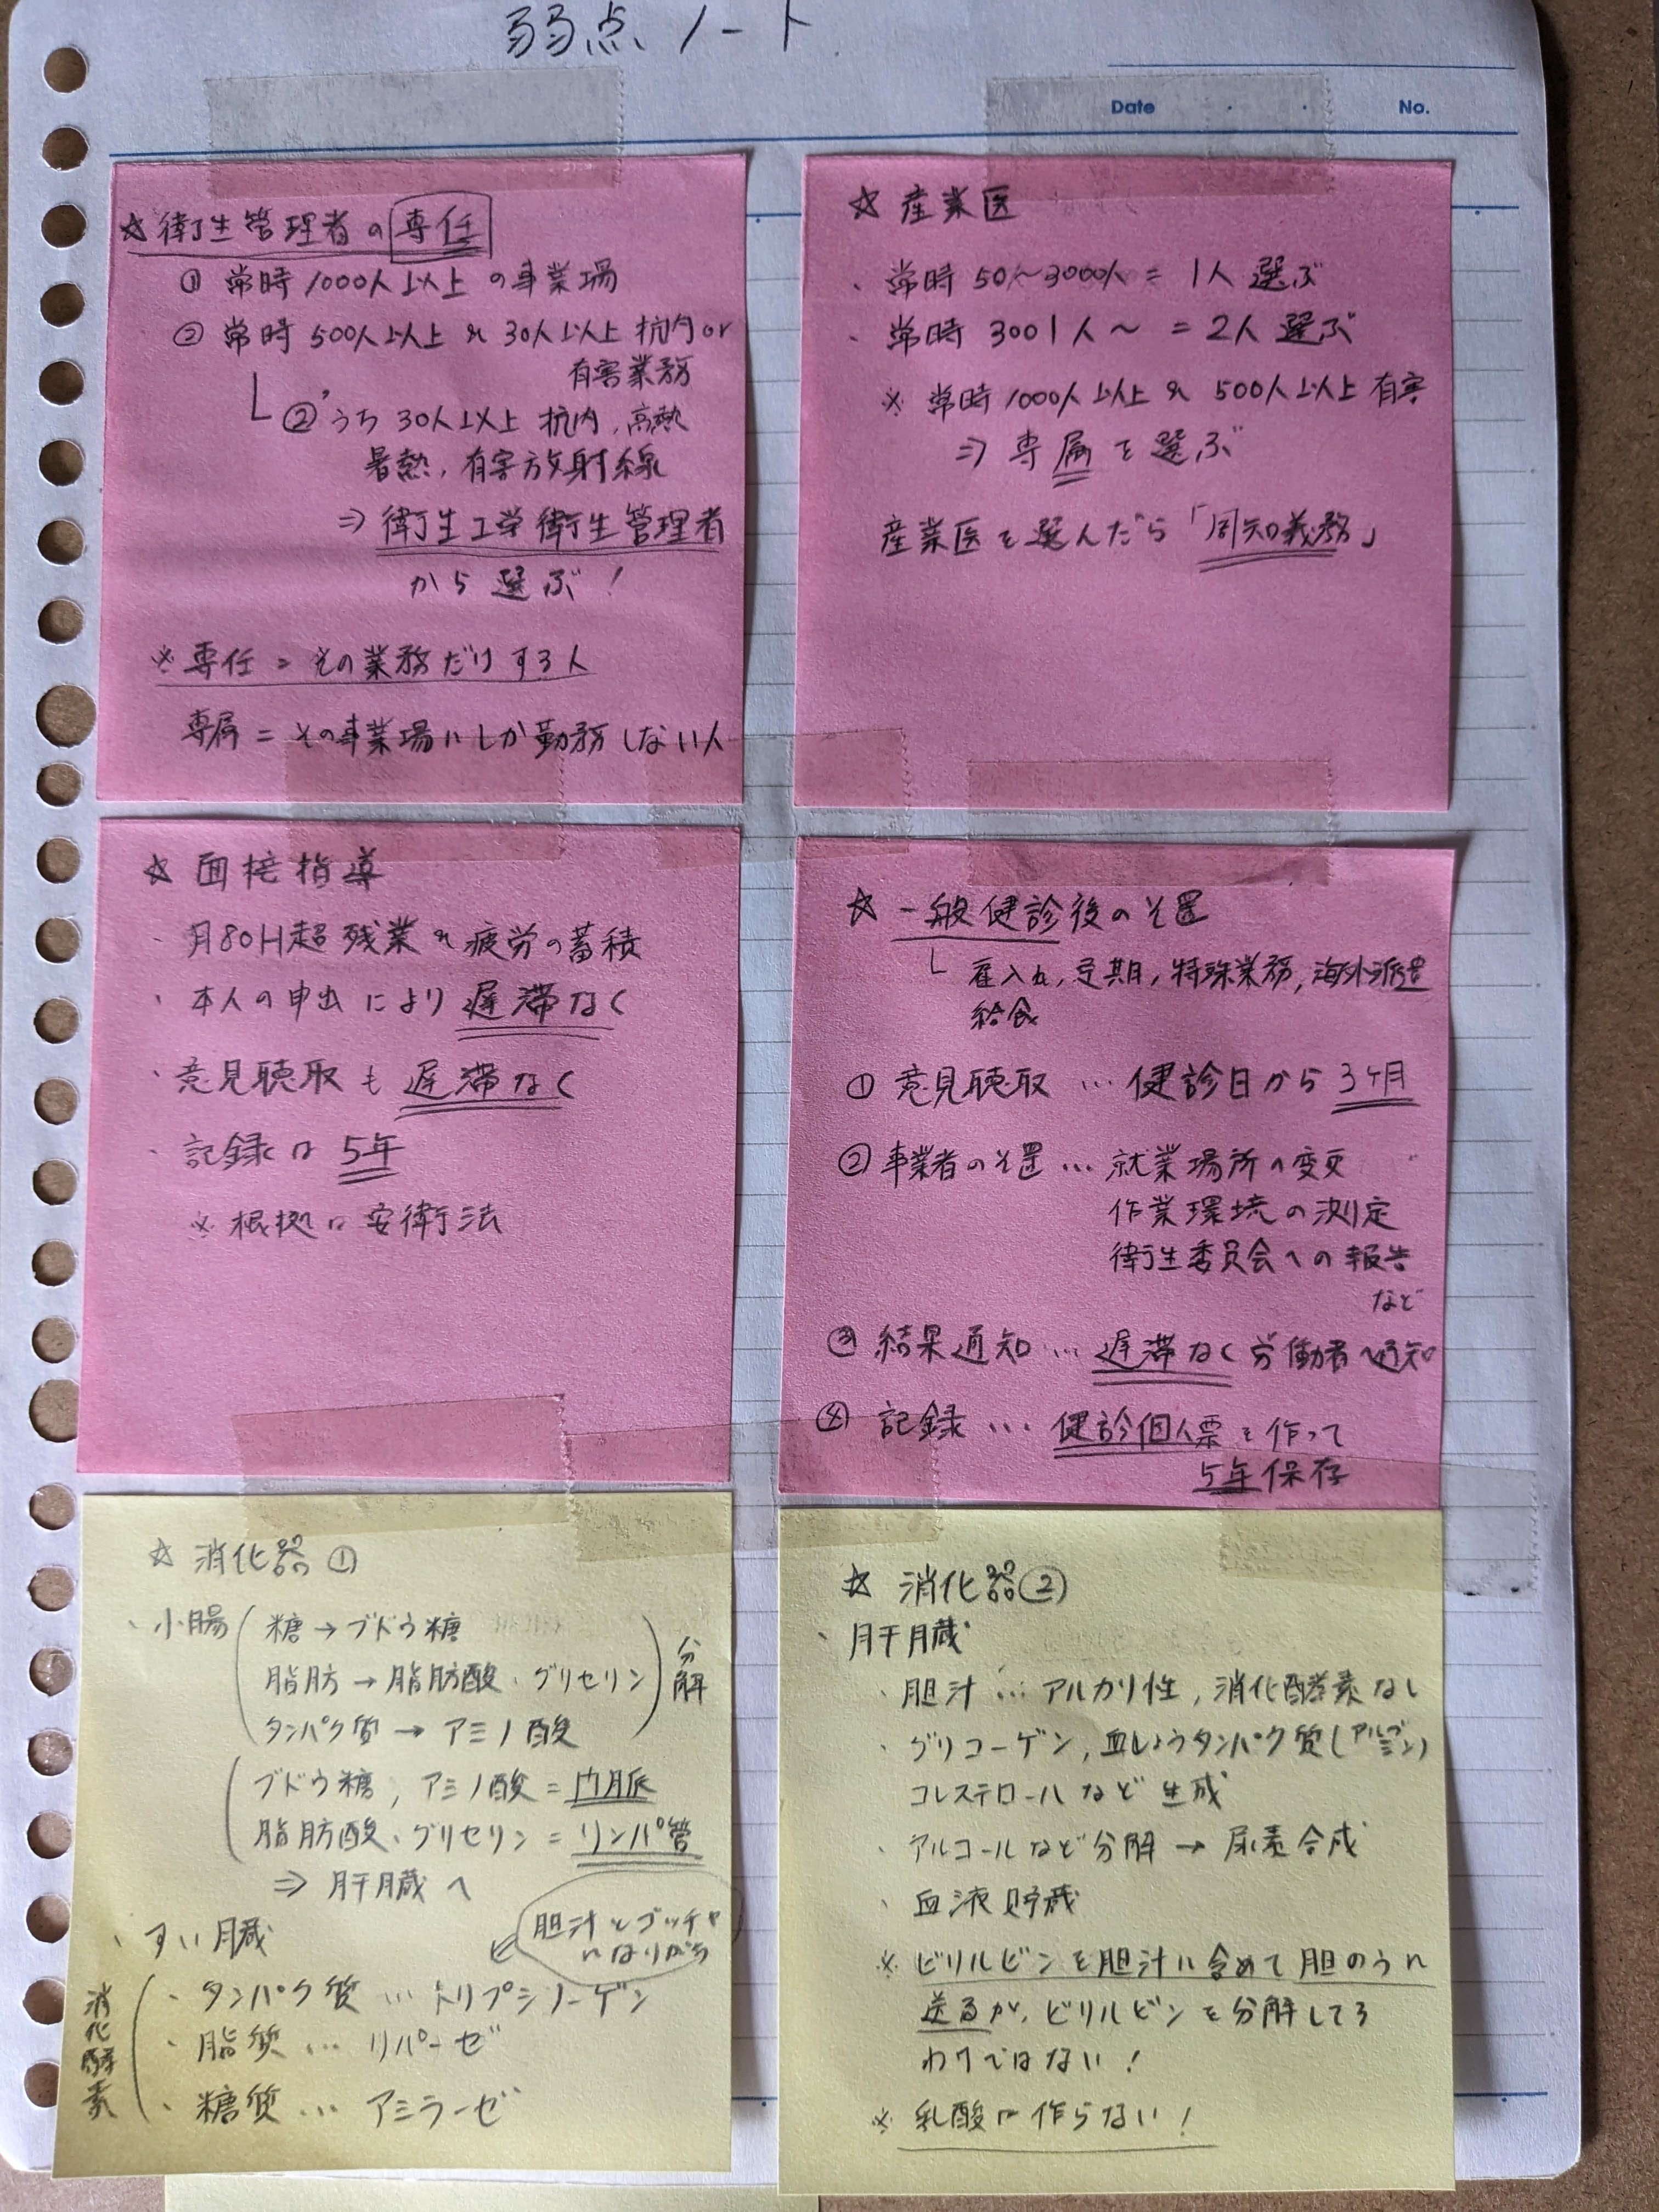 弱点ノート
Date ・ ・ No.
☆衛生管理者の専任
① 常時1000人以上の事業場
② 常時500人以上 & 30人以上 抗内or
有害業務
└ ②' うち30人以上 抗内, 高熱
暑熱, 有害放射線
⇒ 衛生工学衛生管理者
から選ぶ!
※専任 = その業務だけする人
専属 = その事業場にしか勤務しない人
☆ 産業医
・常時 50人〜3000人 = 1人 選ぶ
・常時 3001人〜 = 2人 選ぶ
※ 常時1000人以上 & 500人以上 有害
⇒ 専属を選ぶ
産業医を選んだら「周知義務」
☆ 面接指導
・月80H超 残業 & 疲労の蓄積
・本人の申出により 遅滞なく
・意見聴取も 遅滞なく
・記録は 5年
※根拠は 安衛法
☆ 一般健診後のそ置
└ 雇入れ, 定期, 特殊業務, 海外派遣
給食
① 意見聴取 … 健診日から 3ヶ月
② 事業者のそ置 … 就業場所の変更
作業環境の測定
衛生委員会への報告
など
③ 結果通知 … 遅滞なく労働者へ通知
④ 記録 … 健診個人票を作って
5年保存
☆ 消化器①
・小腸 ( 糖→ブドウ糖
脂肪→脂肪酸・グリセリン ) 分解
タンパク質→アミノ酸
( ブドウ糖, アミノ酸 = 門脈
脂肪酸、グリセリン = リンパ管
⇒ 肝臓へ
胆汁とゴッチャ
になりがち
・すい臓
消化酵素
・タンパク質 … トリプシノーゲン
・脂質 … リパーゼ
・糖質 … アミラーゼ
☆ 消化器②
・肝臓
・胆汁 … アルカリ性, 消化酵素なし
・グリコーゲン, 血しょうタンパク質(アルブミン)
コレステロールなど生成
・アルコールなど分解 → 尿素合成
・血液貯蔵
※ ビリルビンを胆汁に含めて胆のうに
送るが、ビリルビンを分解してる
わけではない!
※ 乳酸は作らない!